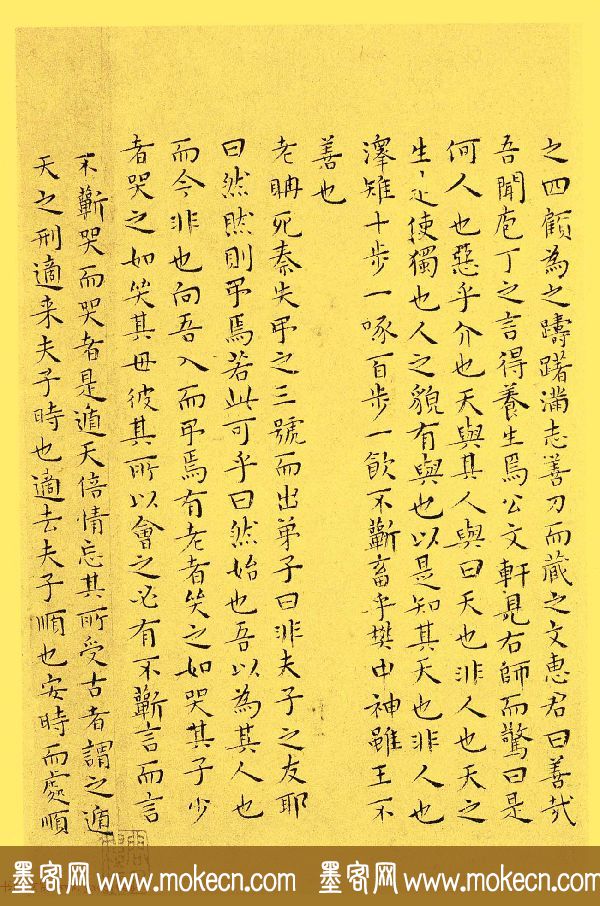 之四顧為之躊躇滿志善刀而藏之文惠君曰善哉
吾聞庖丁之言得養生焉公文軒見右師而驚曰是
何人也惡乎介也天與其人與曰天也非人也天之
生是使獨也人之貌有與也以是知其天也非人也
澤雉十步一啄百步一飲不蘄畜乎樊中神雖王不
善也
老聃死秦失弔之三號而出弟子曰非夫子之友耶
曰然然則弔焉若此可乎曰然始也吾以為其人也
而今非也向吾入而弔焉有老者哭之如哭其子少
者哭之如哭其母彼其所以會之必有不蘄言而言
不蘄哭而哭者是遁天倍情忘其所受古者謂之遁
天之刑適来夫子時也適去夫子順也安時而處順
墨客网 www.mokecn.com 墨客网 www.mokecn.com